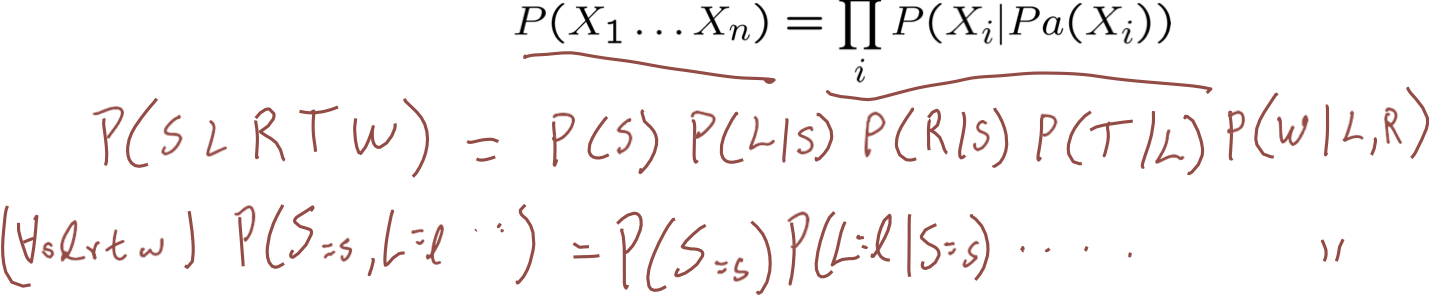 P(X₁ … Xₙ) = ∏ᵢ P(Xᵢ|Pa(Xᵢ))
P(S L R T W) = P(S) P(L|S) P(R|S) P(T|L) P(W|L,R)
(∀s l r t w) P(S=s, L=l ··) = P(S=s) P(L=l|S=s) · · · · "